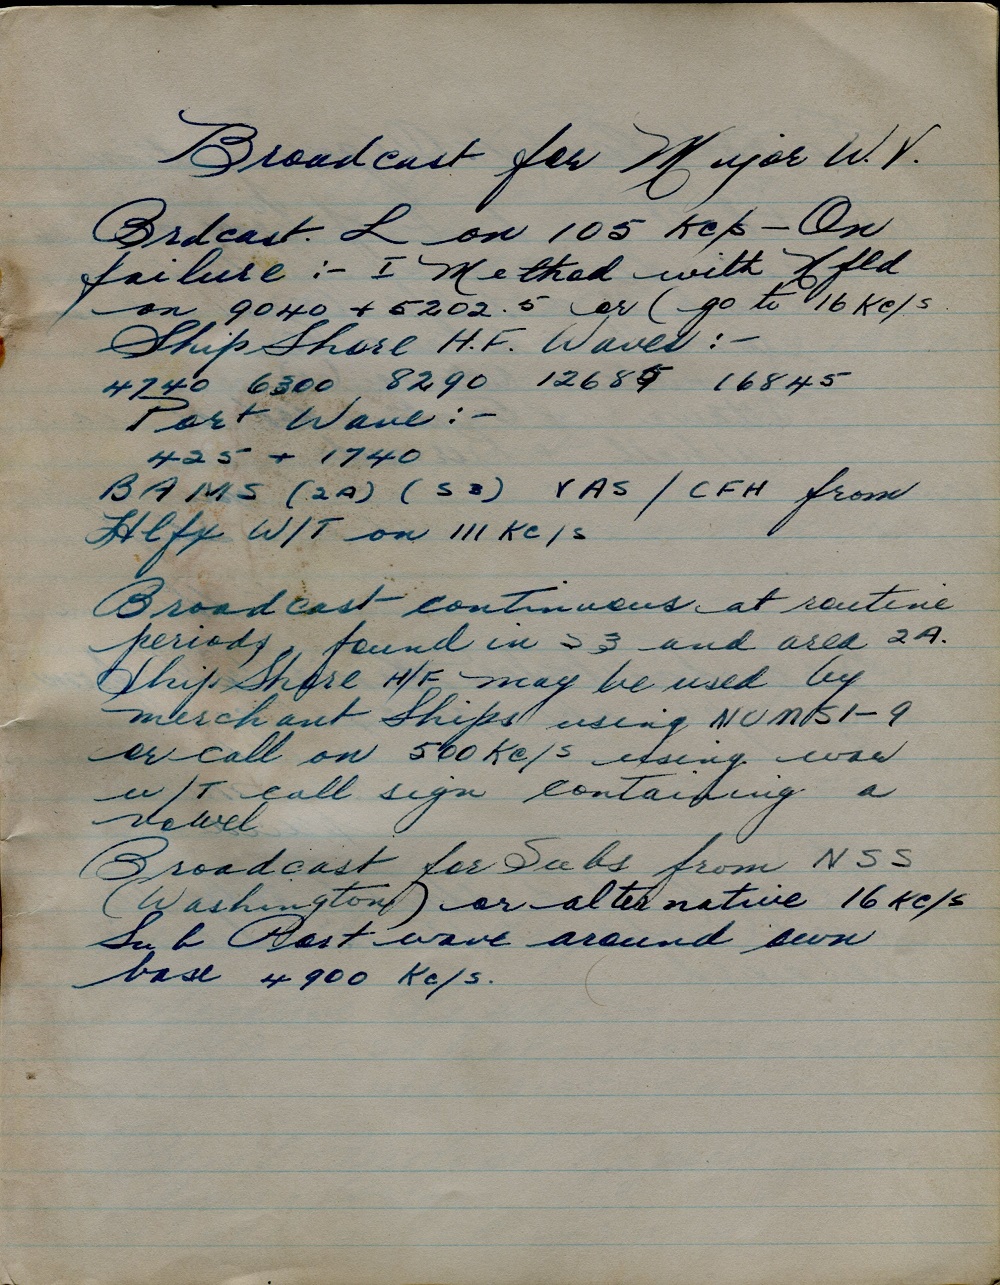 Broadcast for Major W.V.
Brdcast. L on 105 Kc/s - On
failure :- I Method with Nfld
on 9040 + 5202.5 or ( go to 16 Kc/s
Ship Shore H.F. Waves :-
4740 6300 8290 12685 16845
Port Wave :-
425 + 1740
BAMS (2A) (S3) VAS / CFH from
Hlfx W/T on 111 Kc/s
Broadcast continuous at routine
periods, found in S3 and area 2A.
Ship Shore H/F may be used by
merchant Ships using NUMS1-9
or call on 500 Kc/s using war
w/T call sign containing a
vowel
Broadcast for Subs from NSS
(Washington) or alternative 16 Kc/s
Sub Port wave around own
base 4900 Kc/s.